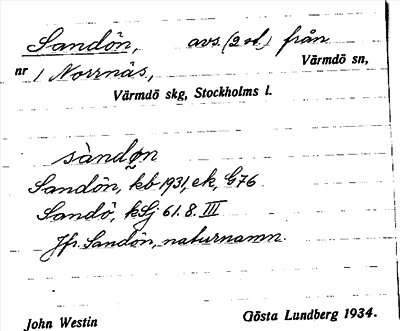 Sandön, avs. (2 st.) från
nr 1 Norrnäs, Värmdö sn,
Värmdö skg, Stockholms l.
sàndo̬n
Sandön, kb 1931, ek, G76
Sandö, kSj 61.8.III
Jfr. Sandön, naturnamn.
John Westin Gösta Lundberg 1934.